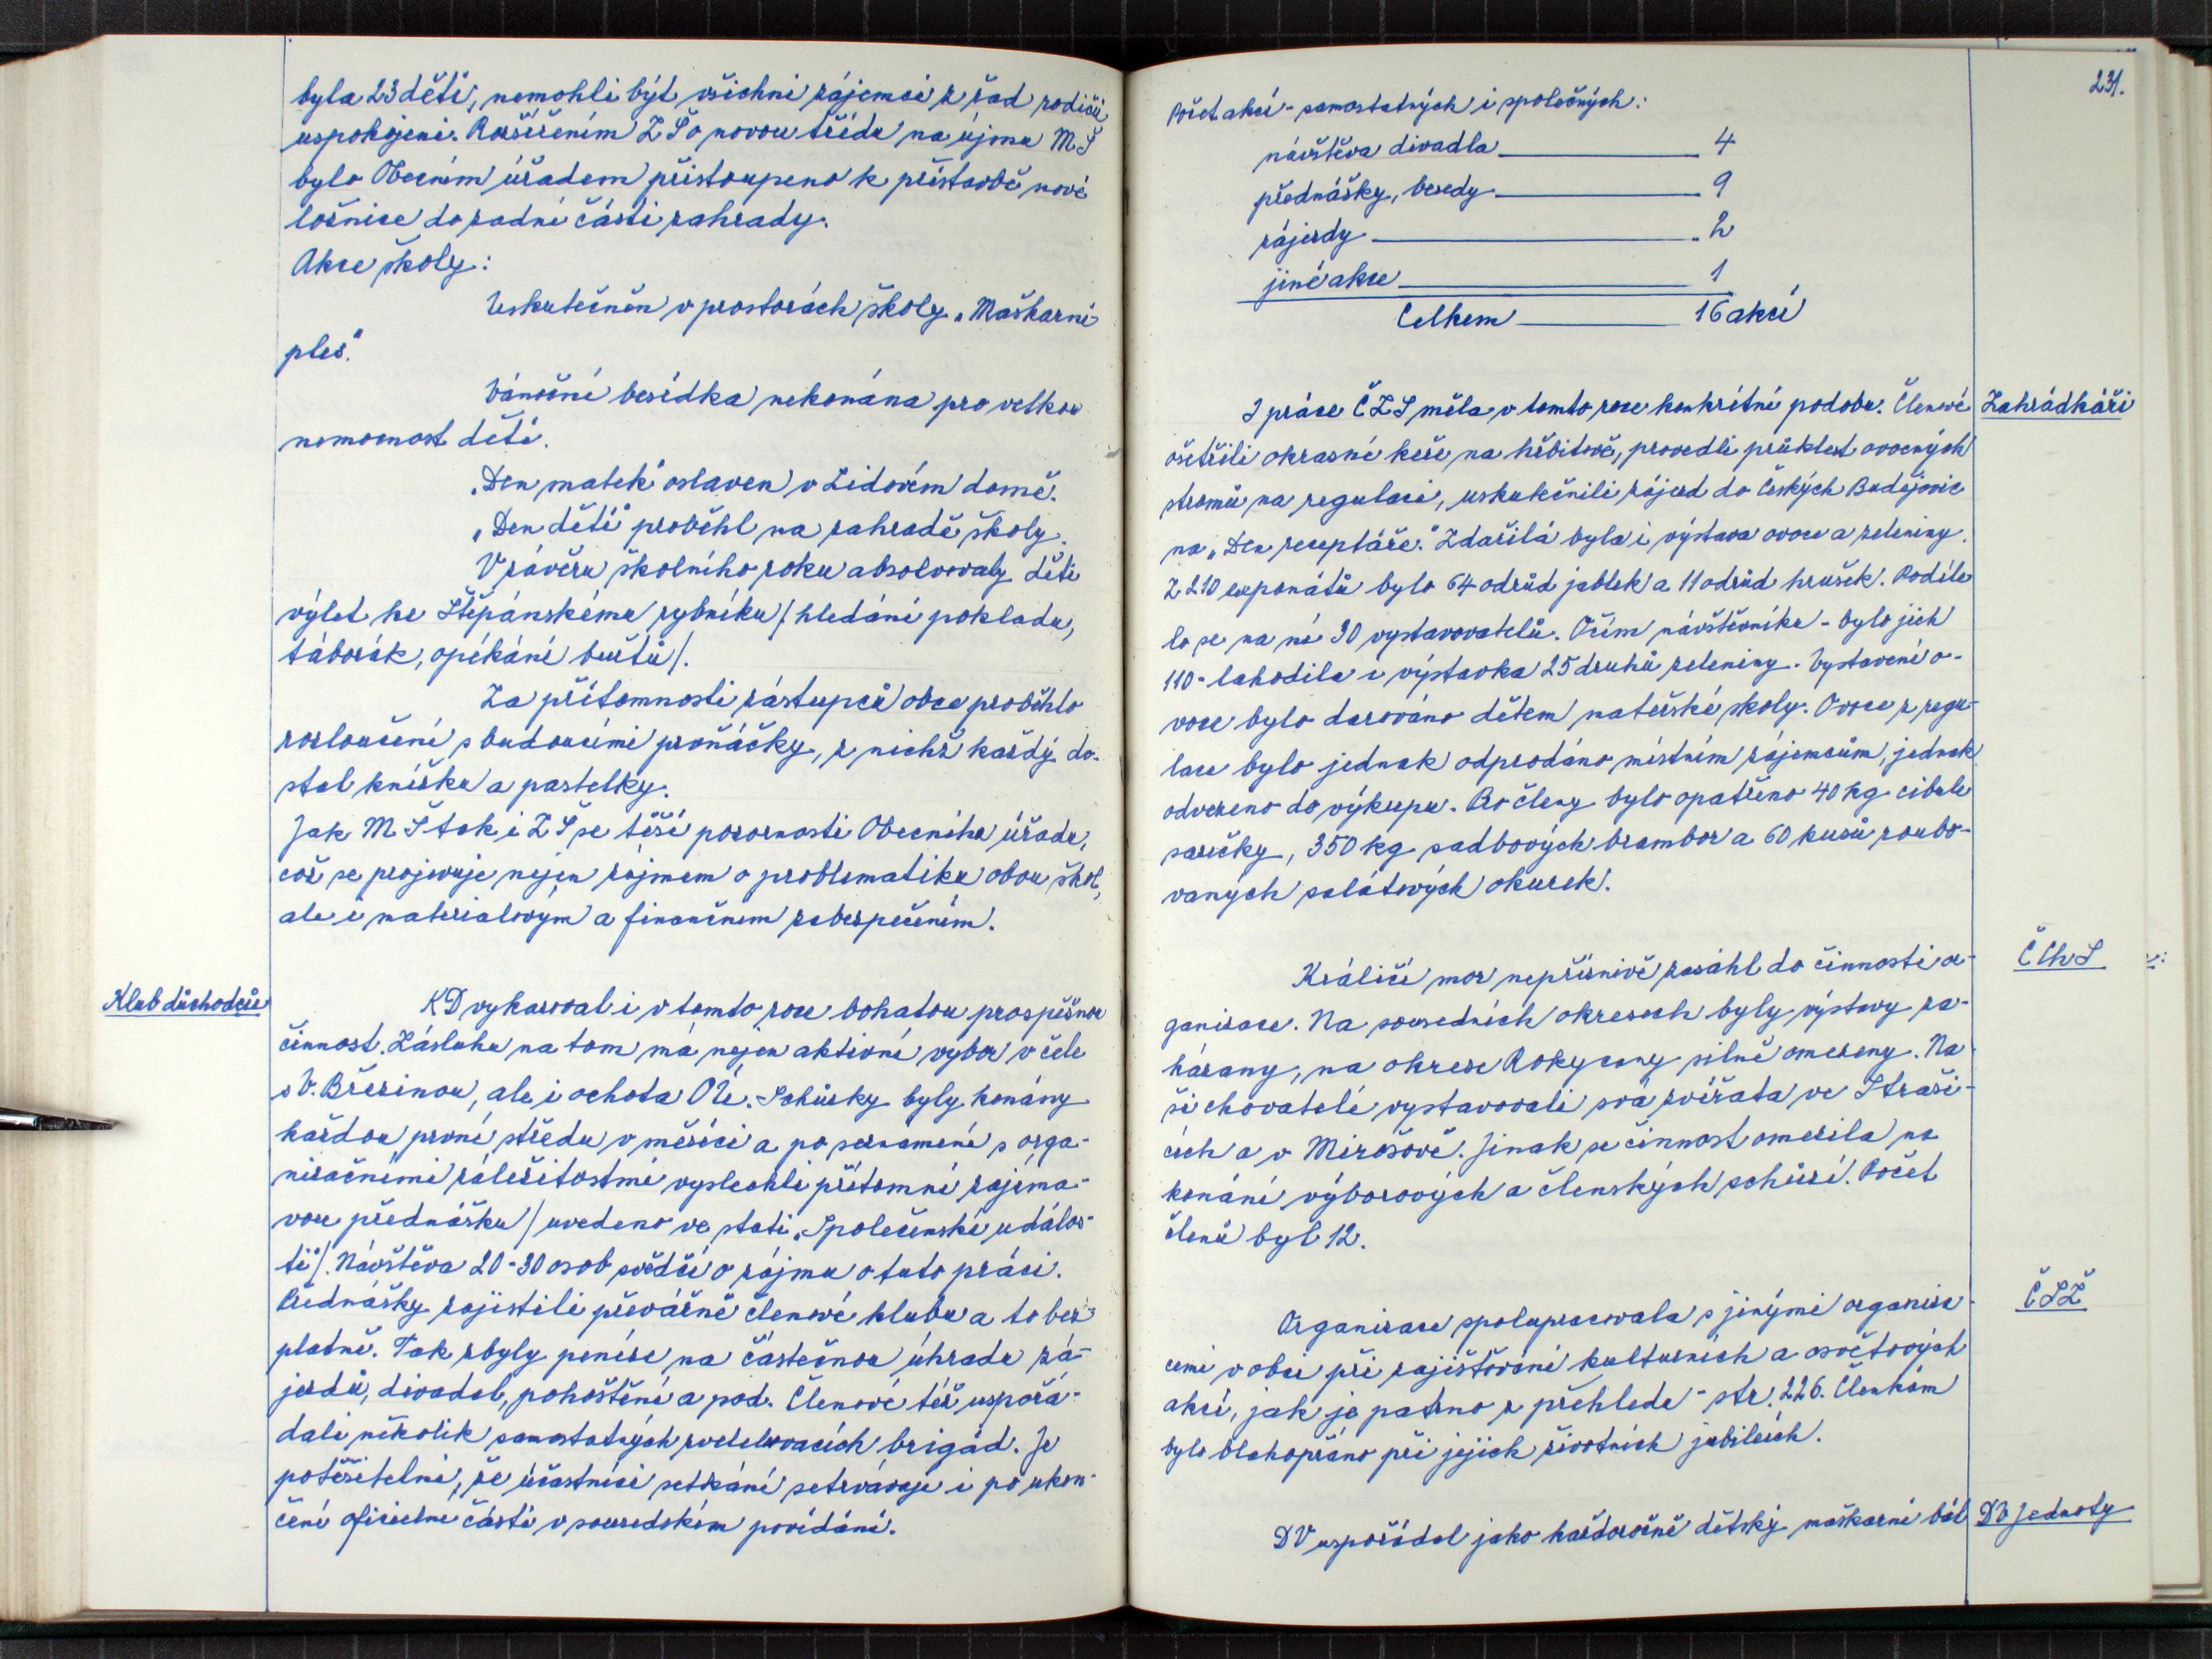 byla 23 dětí, nemohli být všichni zájemci z řad rodičů
uspokojeni. Rozšířením ZŠ o novou třídu na újmu MŠ
bylo Obecním úřadem přistoupeno k přístavbě nové
ložnice do zadní části zahrady.
Akce školy:
Uskutečněn v prostorách školy „Maškarní
ples."
Vánoční besídka nekonána pro velkou
nemocnost dětí.
„Den matek" oslaven v Lidovém domě.
„Den dětí" proběhl na zahradě školy.
V závěru školního roku absolvovaly děti
výlet ke Štěpánskému rybníku / hledání pokladu,
táborák, opékání buřtů /.
Za přítomnosti zástupců obce proběhlo
rozloučení s budoucími prvňáčky, z nichž každý do-
stal knížku a pastelky.
Jak MŠ tak i ZŠ se těší pozornosti Obecního úřadu,
což se projevuje nejen zájmem o problematiku obou škol,
ale i materialovým a finančnem zabezpečením.
Klub důchodců
KD vykazoval i v tomto roce bohatou prospěšnou
činnost. Zásluhu na tom má nejen aktivní vybor v čele
s V. Březinou, ale i ochota OÚ. Schůzky byly konány
každou první středu v měsíci a po seznámení s orga-
nizačními záležitostmi vyslechli přítomní zajíma-
vou přednášku / uvedeno ve stati „Společenské událos-
ti" /. Návštěva 20-30 osob svědčí o zájmu o tuto práci.
Přednášky zajistili převážně členové klubu a to bez-
platně. Tak zbyly peníze na částečnou úhradu zá-
jezdů, divadel, pohoštění a pod. Členové též uspořá-
dali několik samostatných zvelebovacích brigád. Je
potěšitelné, že účastníci setkání setrvávají i po ukon-
čení oficielní části v sousedském povídání.
231.
Počet akcí - samostatných i společných:
návštěva divadla 4
přednášky, besedy 9
zájezdy 2
jiné akce 1
Celkem 16 akcí
Zahrádkáři
I práce ČZS měla v tomto roce konkrétní podobu. Členové
ošetřili okrasné keře na hřbitově, provedli průklest ovocných
stromů na regulaci, uskutečnili zájezd do Českých Budějovic
na „Den receptáře." Zdařilá byla i výstava ovoce a zeleniny.
Z 210 exponátů bylo 64 odrůd jablek a 11 odrůd hrušek. Podíle
lo se na ní 30 vystavovatelů. Očím návštěvníků - bylo jich
110 - lahodila i výstavka 25 druhů zeleniny. Vystavené o-
voce bylo darováno dětem mateřské školy. Ovoce z regu-
lace bylo jednak odprodáno místním zájemcům, jednak
odvezeno do výkupu. Pro členy bylo opatřeno 40 kg cibule
sazečky, 350 kg sadbových brambor a 60 kusů roubo-
vaných salátových okurek.
ČChS
Králičí mor nepříznivě zasáhl do činnosti or-
ganizace. Na sousedních okresech byly výstavy za-
kázany, na okrese Rokycany silně omezeny. Na
ši chovatelé vystavovali svá zvířata ve Straši-
cích a v Mirošově. Jinak se činnost omezila na
konání výborových a členských schůzí. Počet
členů byl 12.
ČSŽ
Organizace spolupracovala s jinými organiza-
cemi v obci při zajišťování kulturních a osvětových
akcí, jak je patrno z přehledu - str. 226. Členkám
bylo blahopřáno při jejich životních jubileích.
DV Jednoty
DV uspořádal jako každoročně dětský maškarní bál